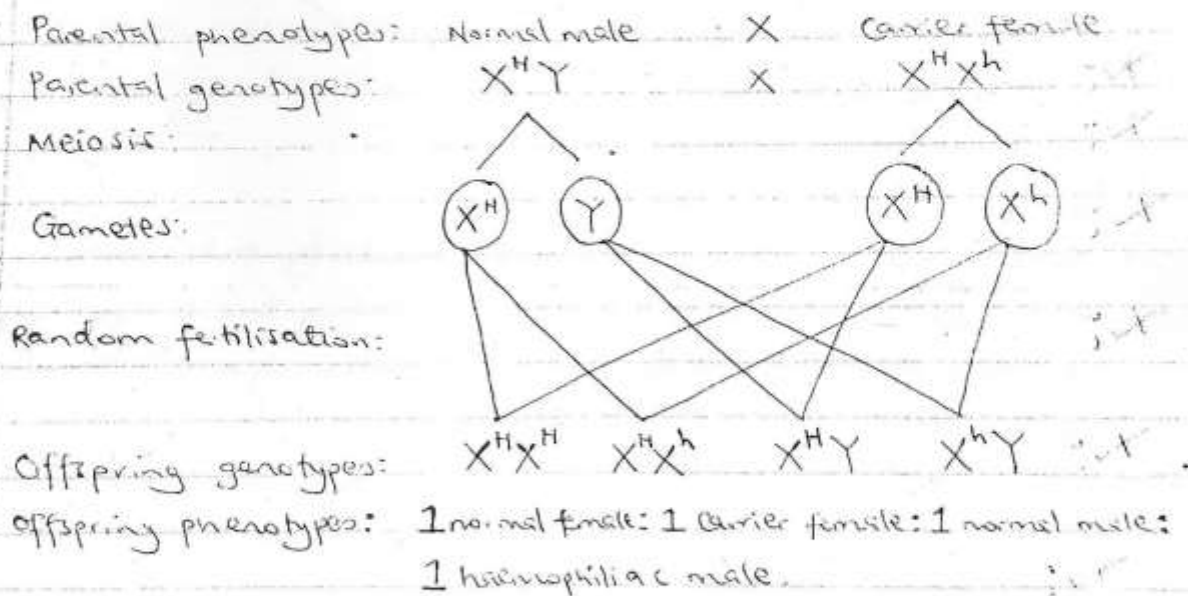 Parental phenotypes: Normal male X Carrier female
Parental genotypes: XᴴY X XᴴXʰ
Meiosis:
Gametes: Xᴴ Y Xᴴ Xʰ
Random fertilisation:
Offspring genotypes: XᴴXᴴ XᴴXʰ XᴴY XʰY
Offspring phenotypes: 1 normal female: 1 carrier female: 1 normal male:
1 haemophiliac male.